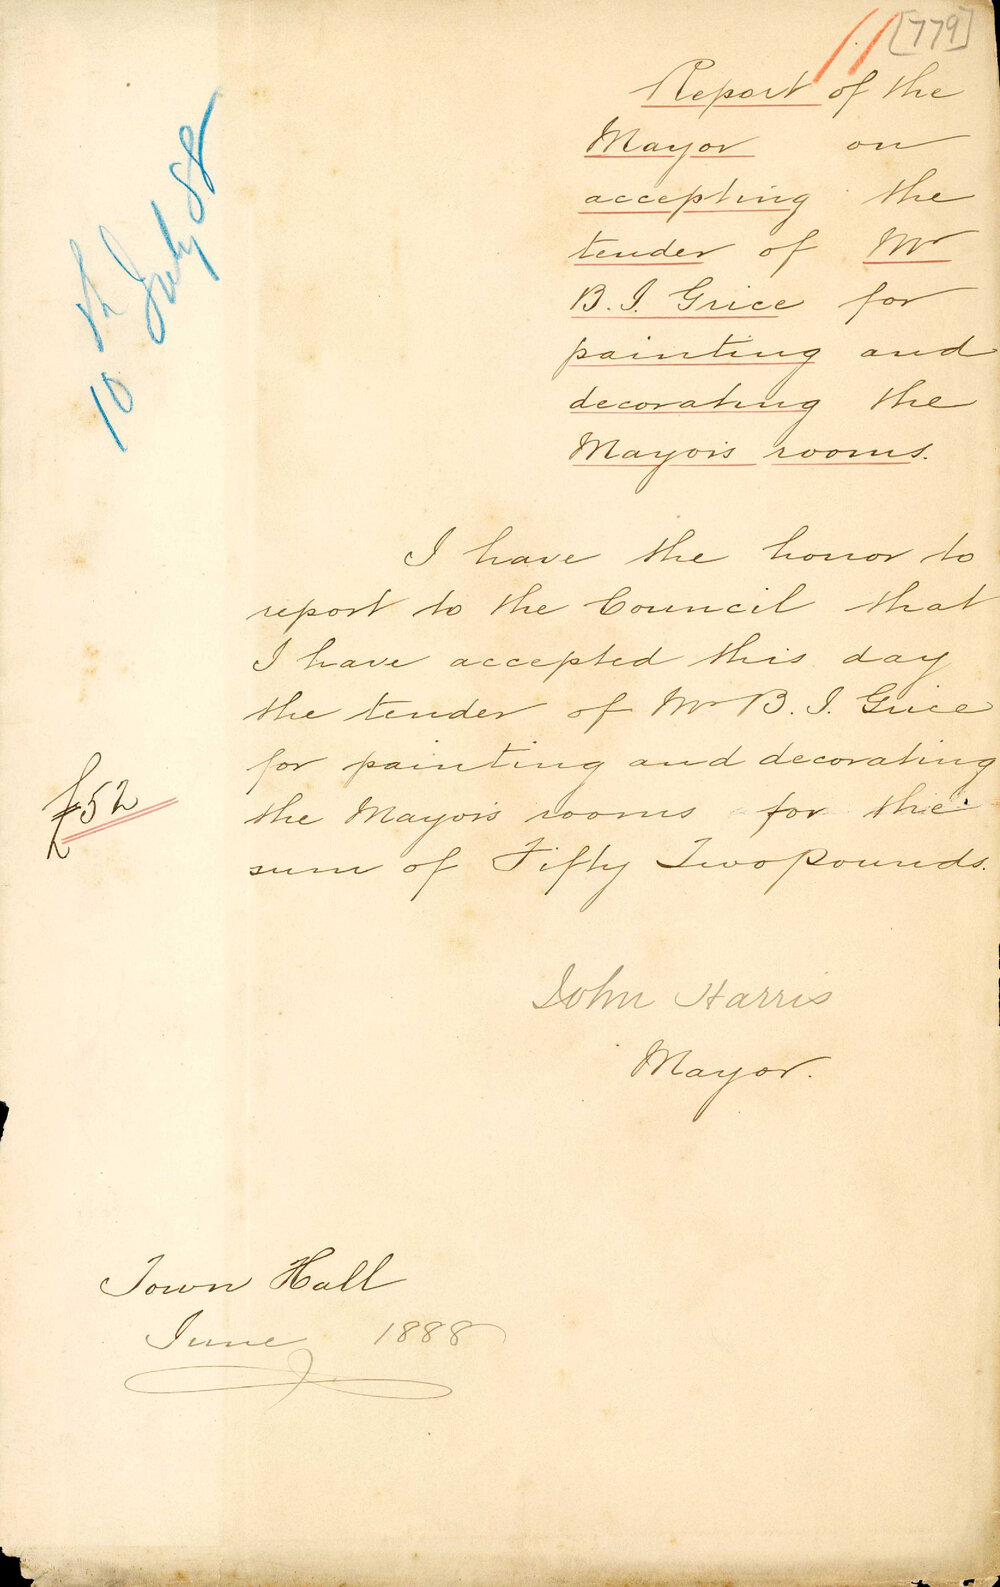 [779]
11
Report of the
Mayor on
accepting the
tender of Mr
B. I. Grice for
painting and
decorating the
Mayors rooms.
10th July 88
I have the honor to
report to the Council that
I have accepted this day
the tender of Mr B. I. Grice
for painting and decorating
the Mayors rooms for the
sum of Fifty Two pounds.
£52
John Harris
Mayor.
Town Hall
June 1888